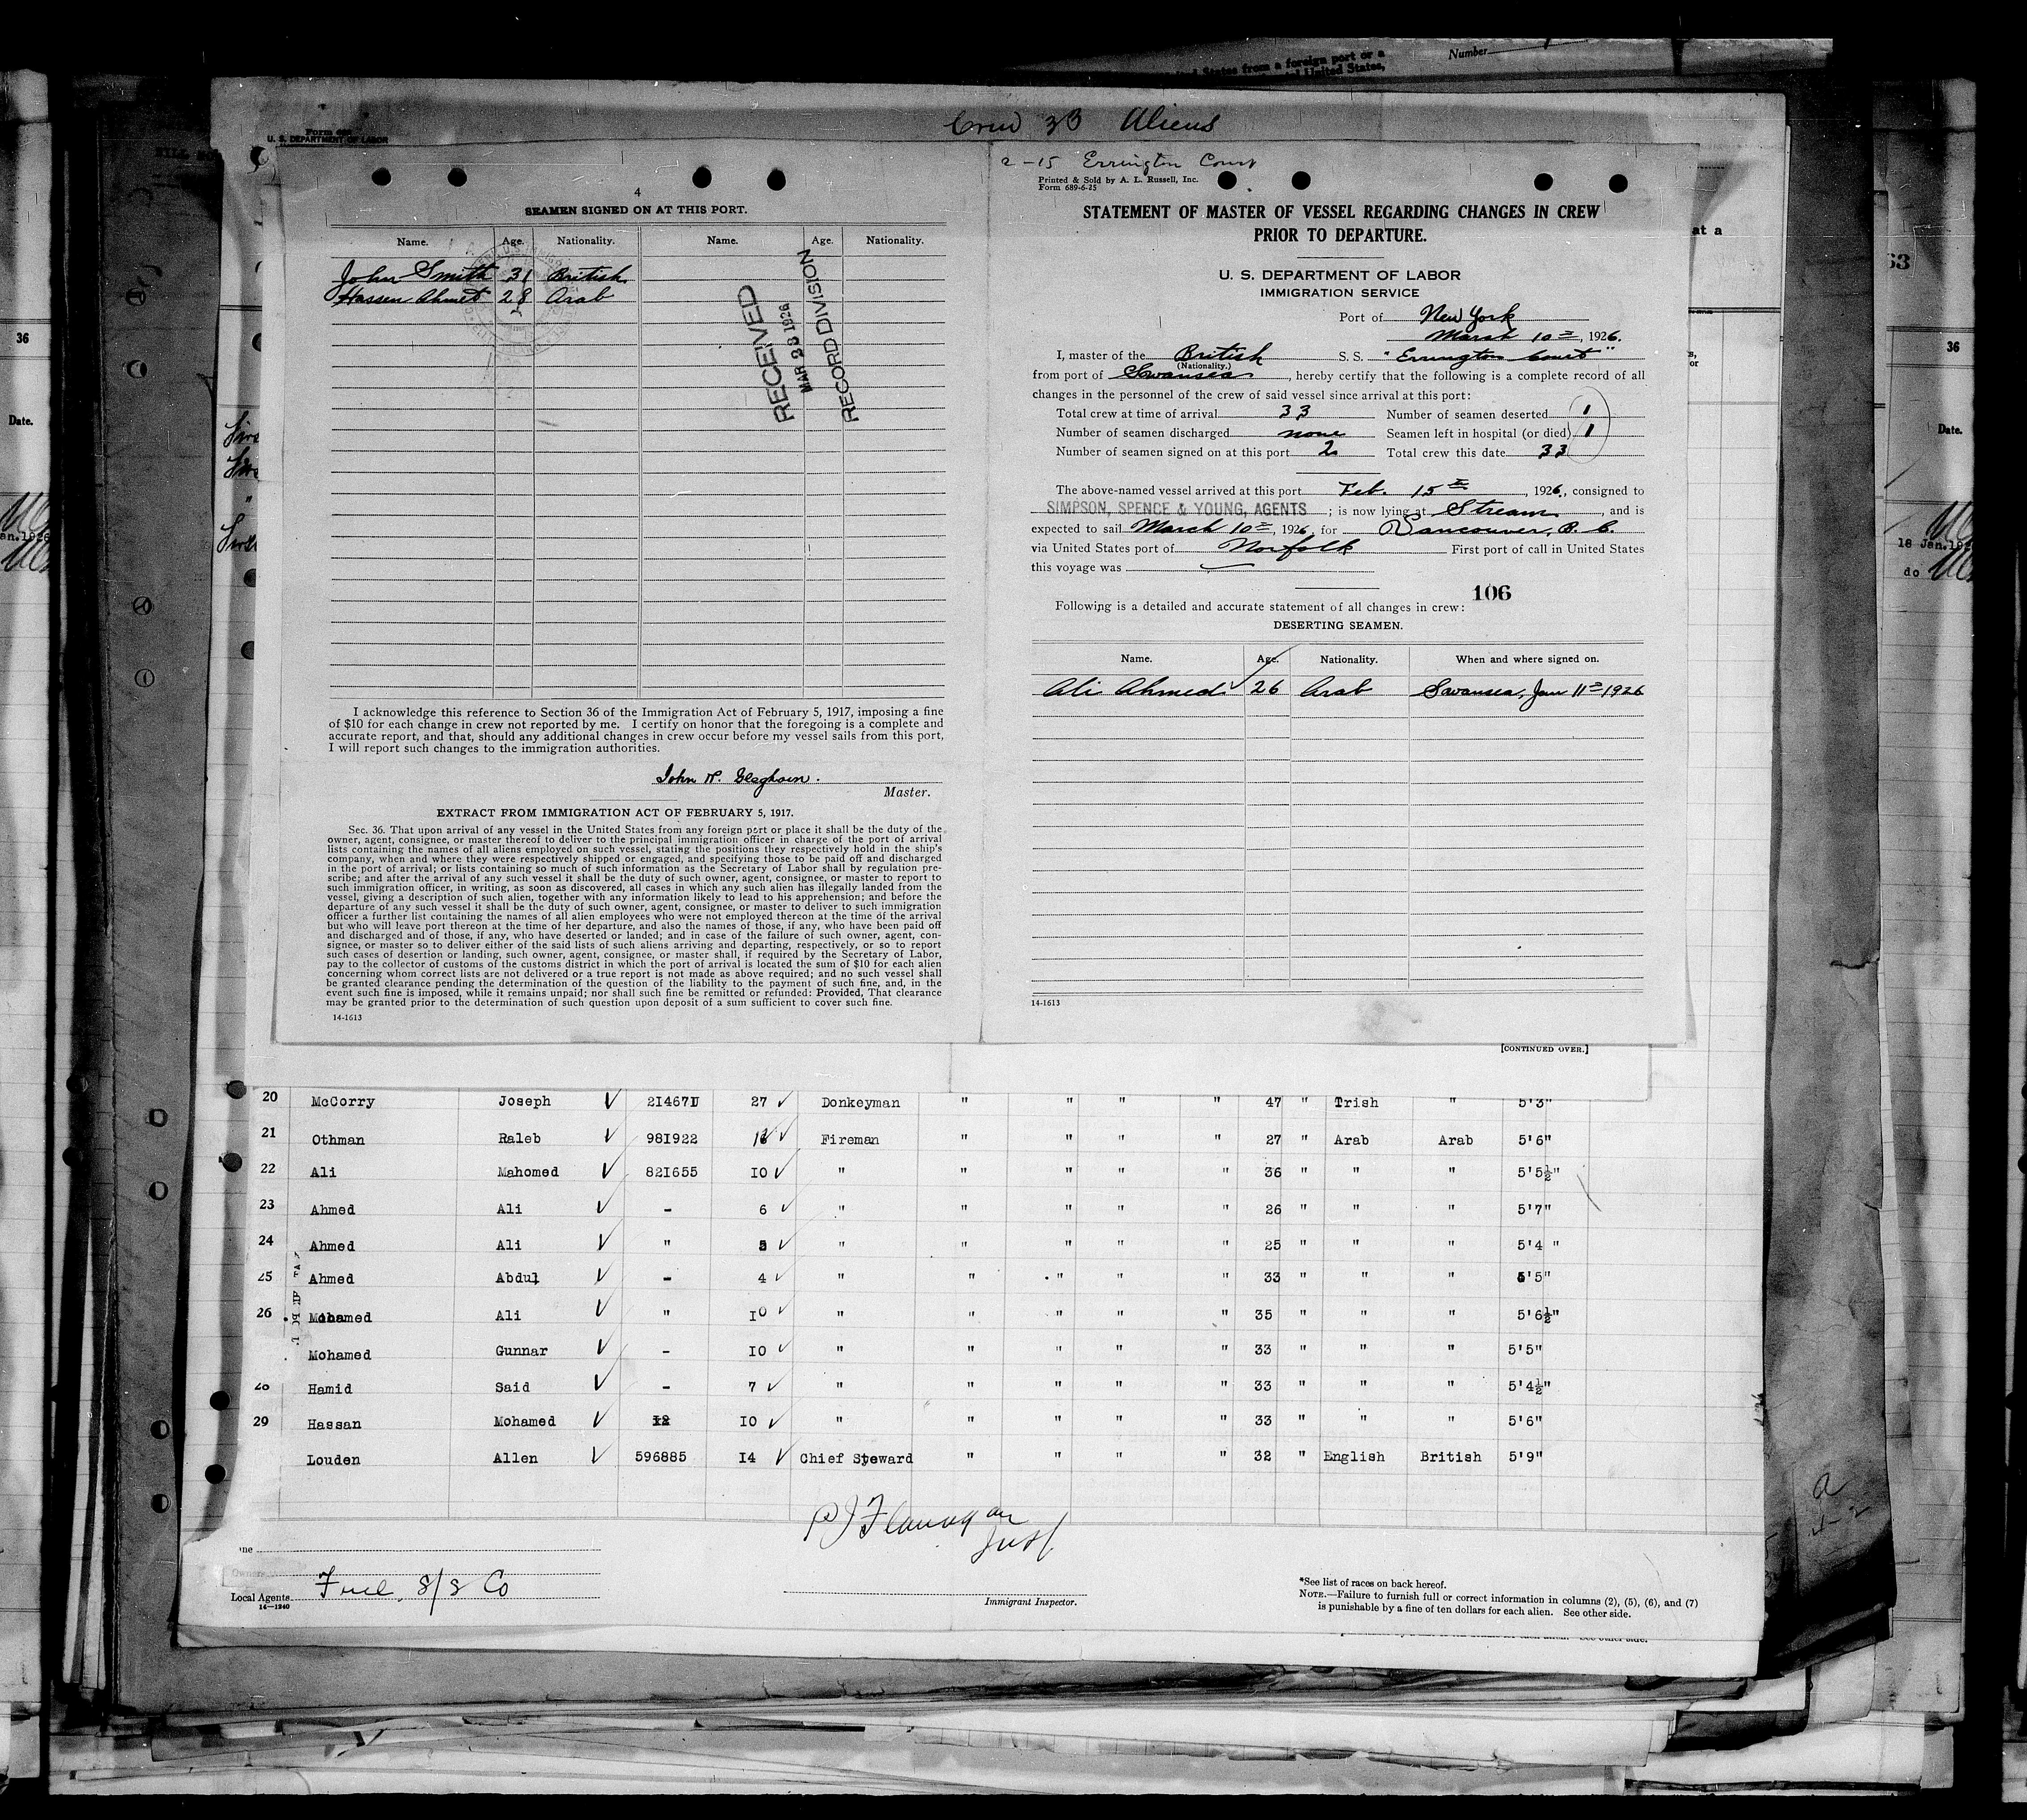 Number
United States from a foreign port or a
United States,
Crew 33 Aliens
Form 689
U. S. DEPARTMENT OF LABOR
4
SEAMEN SIGNED ON AT THIS PORT.
Name. Age. Nationality. Name. Age. Nationality.
John Smith 31 British
Hassen Ahmet 28 Arab
RECEIVED
MAR 23 1926
RECORD DIVISION
I acknowledge this reference to Section 36 of the Immigration Act of February 5, 1917, imposing a fine
of $10 for each change in crew not reported by me. I certify on honor that the foregoing is a complete and
accurate report, and that, should any additional changes in crew occur before my vessel sails from this port,
I will report such changes to the immigration authorities.
John
Master.
EXTRACT FROM IMMIGRATION ACT OF FEBRUARY 5, 1917.
Sec. 36. That upon arrival of any vessel in the United States from any foreign port or place it shall be the duty of the
owner, agent, consignee, or master thereof to deliver to the principal immigration officer in charge of the port of arrival
lists containing the names of all aliens employed on such vessel, stating the positions they respectively hold in the ship's
company, when and where they were respectively shipped or engaged, and specifying those to be paid off and discharged
in the port of arrival; or lists containing so much of such information as the Secretary of Labor shall by regulation pre-
scribe; and after the arrival of any such vessel it shall be the duty of such owner, agent, consignee, or master to report to
such immigration officer, in writing, as soon as discovered, all cases in which any such alien has illegally landed from the
vessel, giving a description of such alien, together with any information likely to lead to his apprehension; and before the
departure of any such vessel it shall be the duty of such owner, agent, consignee, or master to deliver to such immigration
officer a further list containing the names of all alien employees who were not employed thereon at the time of the arrival
but who will leave port thereon at the time of her departure, and also the names of those, if any, who have been paid off
and discharged and of those, if any, who have deserted or landed; and in case of the failure of such owner, agent, con-
signee, or master so to deliver either of the said lists of such aliens arriving and departing, respectively, or so to report
such cases of desertion or landing, such owner, agent, consignee, or master shall, if required by the Secretary of Labor,
pay to the collector of customs of the customs district in which the port of arrival is located the sum of $10 for each alien
concerning whom correct lists are not delivered or a true report is not made as above required; and no such vessel shall
be granted clearance pending the determination of the question of the liability to the payment of such fine, and, in the
event such fine is imposed, while it remains unpaid; nor shall such fine be remitted or refunded: Provided, That clearance
may be granted prior to the determination of such question upon deposit of a sum sufficient to cover such fine.
14-1613
2-15 Errington Court
Printed & Sold by A. L. Russell, Inc.
Form 689-6-25
STATEMENT OF MASTER OF VESSEL REGARDING CHANGES IN CREW
PRIOR TO DEPARTURE.
U. S. DEPARTMENT OF LABOR
IMMIGRATION SERVICE
Port of New York
March 10th, 1926.
I, master of the British S. S. "Errington Court"
(Nationality.)
from port of Swansea, hereby certify that the following is a complete record of all
changes in the personnel of the crew of said vessel since arrival at this port:
Total crew at time of arrival 33 Number of seamen deserted 1
Number of seamen discharged none Seamen left in hospital (or died) 1
Number of seamen signed on at this port 2 Total crew this date 33
The above-named vessel arrived at this port Feb. 15th, 1926, consigned to
SIMPSON, SPENCE & YOUNG, AGENTS; is now lying at Stream, and is
expected to sail March 10th, 1926, for Vancouver, B. C.
via United States port of Norfolk First port of call in United States
this voyage was
106
Following is a detailed and accurate statement of all changes in crew:
DESERTING SEAMEN.
Name. Age. Nationality. When and where signed on.
Ali Ahmed 26 Arab Swansea, Jan 11th 1926
14-1613
[CONTINUED OVER.]
20 McCorry Joseph √ 214671 27 ✓ Donkeyman " " " " 47 " Irish " 5'3"
21 Othman Raleb √ 981922 ✓ Fireman " " " " 27 " Arab Arab 5'6"
22 Ali Mahomed √ 821655 10 ✓ " " " " " 36 " " " 5'5½"
23 Ahmed Ali √ - 6 ✓ " " " " " 26 " " " 5'7"
24 Ahmed Ali √ " 5 ✓ " " " " " 25 " " " 5'4 "
25 Ahmed Abdul √ - 4 ✓ " " " " " 33 " " " 5'5"
26 Mohamed Ali √ " 10 ✓ " " " " " 35 " " " 5'6½"
Mohamed Gunnar √ - 10 ✓ " " " " " 33 " " " 5'5"
28 Hamid Said √ - 7 ✓ " " " " " 33 " " " 5'4½"
29 Hassan Mohamed √ 12 10 ✓ " " " " " 33 " " " 5'6"
Louden Allen √ 596885 14 ✓ Chief Steward " " " " 32 " English British 5'9"
P J Flanagan
Insp
Owners
Local Agents Funch S/S Co
14-1240
Immigrant Inspector.
*See list of races on back hereof.
NOTE.—Failure to furnish full or correct information in columns (2), (5), (6), and (7)
is punishable by a fine of ten dollars for each alien. See other side.
36
Date.
36
Date.
18 Jan.
do
53
at a